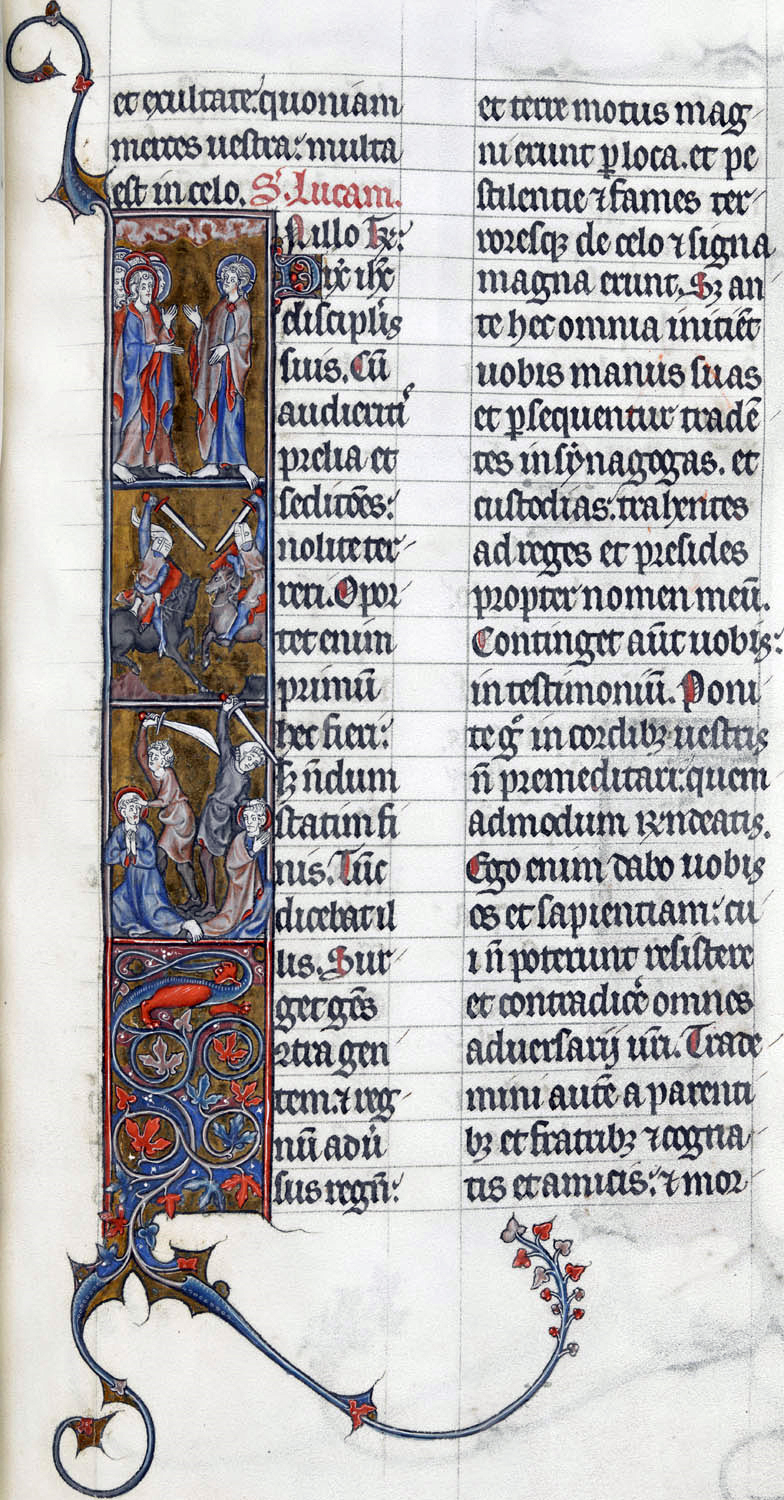 et exultate. quoniam
merces uestra: multa
est in celo. S. Lucam.
In illo tꝑe:
Dix̄ ih̄c
discipĺis
suis. Cū
audierit᷒
prelia et
sedic̄oēs:
nolite ter
reri. Opor
tet enim
primū
hec fieri:
sꝫ n̄dum
statim fi
nis. Tūc
dicebat il
lis. Sur
get gēs
ↄtra gen
tem. ⁊ reg
nū adu᷒
sus regn̄:
et terre motus mag
ni erunt ꝑ loca. et pe
stilentie ⁊ fames ter
roresqꝫ de celo ⁊ signa
magna erunt. Sꝫ an
te hec omnia inicient̄
uobis manus suas
et ꝑsequentur tradē
tes in sẏnagogas. et
custodias: trahentes
ad reges et presides
propter nomen meū.
Continget aūt uobis:
in testimoniū. Poni
te gͦ in cordibꝫ uestris
n̄ premeditari: quem
admodum rn̄deatis.
Ego enim dabo uobis
os et sapientiam: cu
i n̄ poterunt resistere
et contradicẽ omnes
aduersarij ur̄i. Trade
mini autē a parenti
bꝫ et fratribꝫ ⁊ cogna
tis et amicis: ⁊ mor